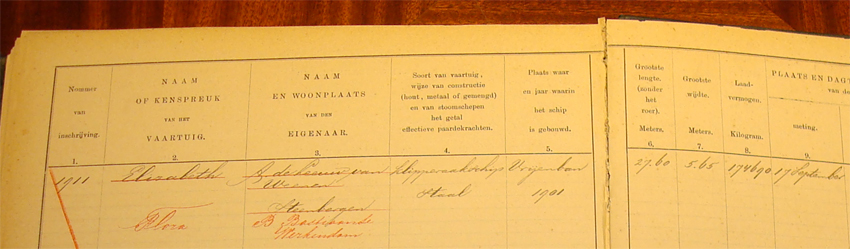 Nommer
van
inschrijving.
NAAM
OF KENSPREUK
VAN HET
VAARTUIG.
NAAM
EN WOONPLAATS
VAN DEN
EIGENAAR.
Soort van vaartuig,
wijze van constructie
(hout, metaal of gemengd)
en van stoomschepen
het getal
effectieve paardekrachten.
Plaats waar
en jaar waarin
het schip
is gebouwd.
Grootste
lengte.
(zonder
het
roer).
Meters.
Grootste
wijdte.
Meters.
Laad-
vermogen.
Kilogram.
PLAATS EN DAGT
van de
meting.
1. 2. 3. 4. 5. 6. 7. 8. 9.
1911 Elizabeth A. de Leeuw van Klipperaakschip Vrijenban 27.60 5.65 174690 17 September
Staal 1901
Steenbergen
Flora B
Werkendam